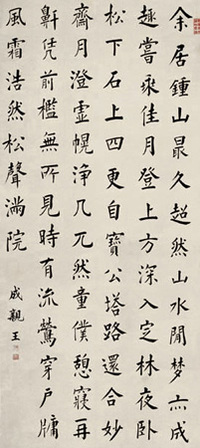 余居鍾山最久超然山水閒夢亦成
趣嘗乘佳月登上方深入定林夜卧
松下石上四更自寶公塔路還合妙
齋月澄虛幌淨几兀然童僕憩寢再
鼾凭前檻無所見時有流螢穿戶牖
風霜浩然松聲滿院
成親王